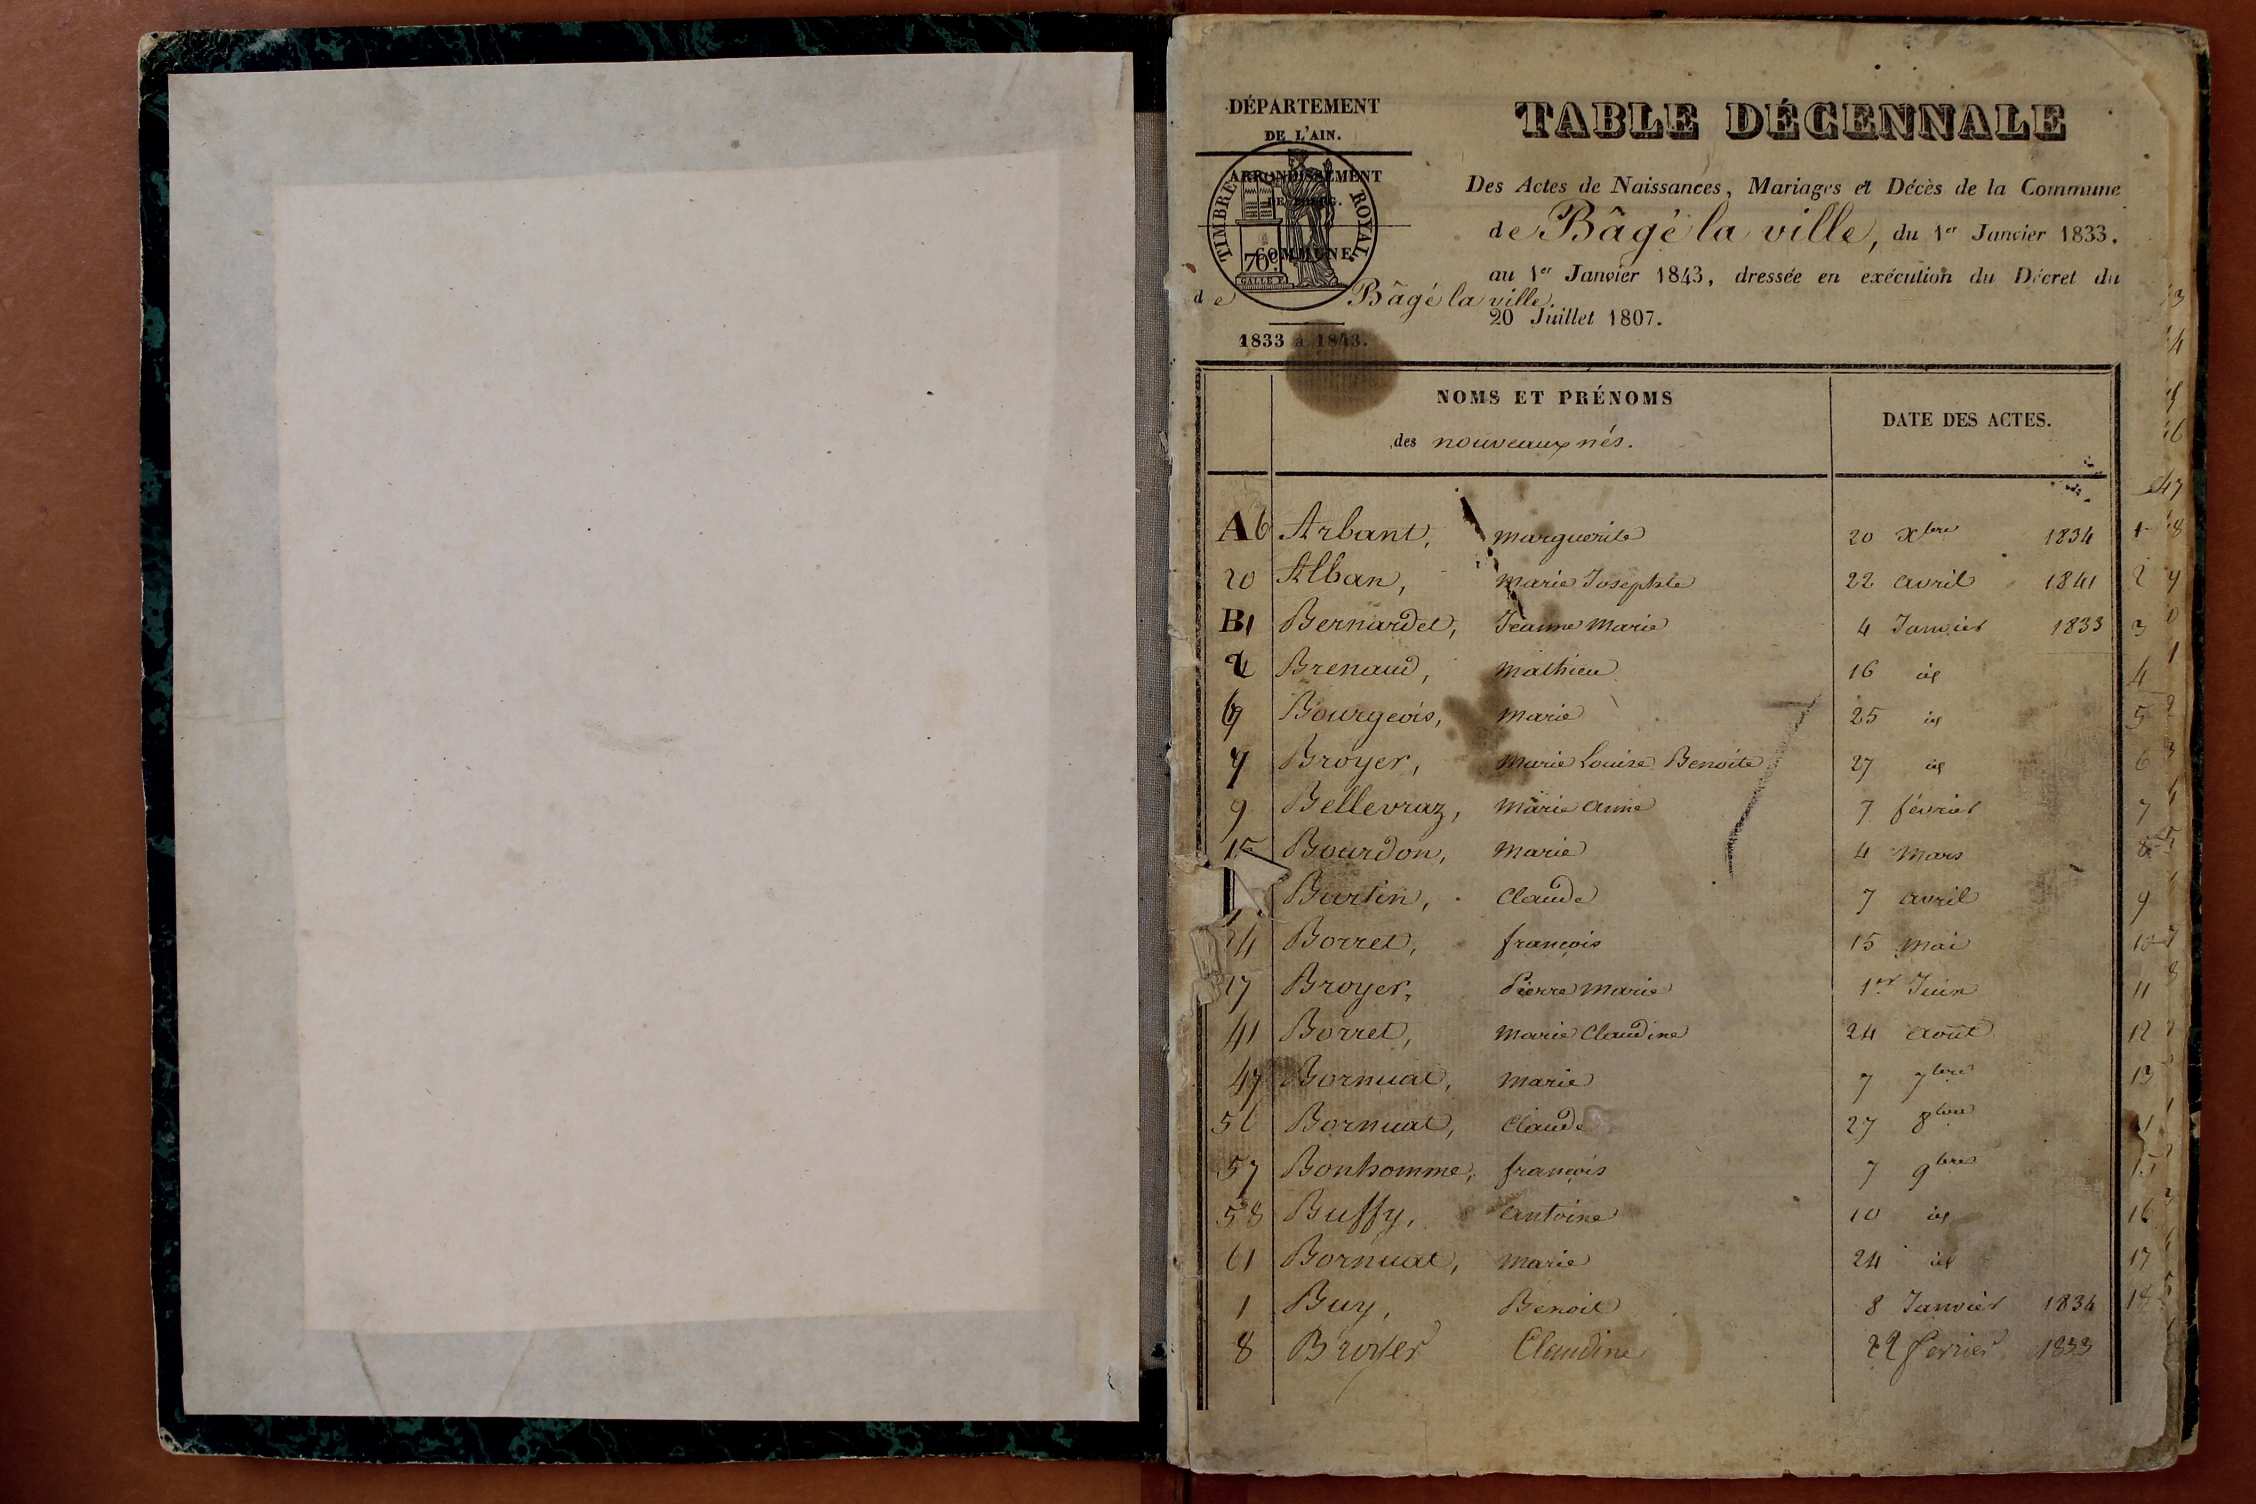 DÉPARTEMENT
DE L'AIN.
ARRONDISSEMENT
DE BOURG.
COMMUNE
de Bâgé la ville.
1833 à 1843.
TIMBRE ROYAL
70
TABLE DÉCENNALE
Des Actes de Naissances, Mariages et Décès de la Commune
de Bâgé la ville, du 1er Janvier 1833.
au 1er Janvier 1843, dressée en exécution du Décret du
20 Juillet 1807.
NOMS ET PRÉNOMS
des nouveaux nés.
DATE DES ACTES.
A 6 Arbant, marguerite 20 Xbre 1834 1
20 Alban, marie Josephte 22 avril 1841 2
B 1 Bernardet, Jeanne Marie 4 Janvier 1833 3
Brenaud, mathieu 16 id 4
Bourgeois, marie 25 id 5
7 Broyer, marie Louise Benoite 27 id 6
9 Bellevraz, marie anne 7 février 7
15 Bourdon, marie 4 mars 8
Burtin, Claude 7 avril 9
24 Borret, françois 15 mai 10
Broyer, Pierre Marie 1er Juin 11
41 Borret, marie Claudine 24 août 12
47 Bornuat, marie 7 7bre 13
56 Bornuat, Claude 27 8bre
57 Bonhomme, françois 7 9bre 15
58 Buffy, antoine 10 id 16
61 Bornuat, marie 24 id 17
1 Buy, Benoit 8 Janvier 1834 18
8 Broyer Claudine 22 fevrier 1833